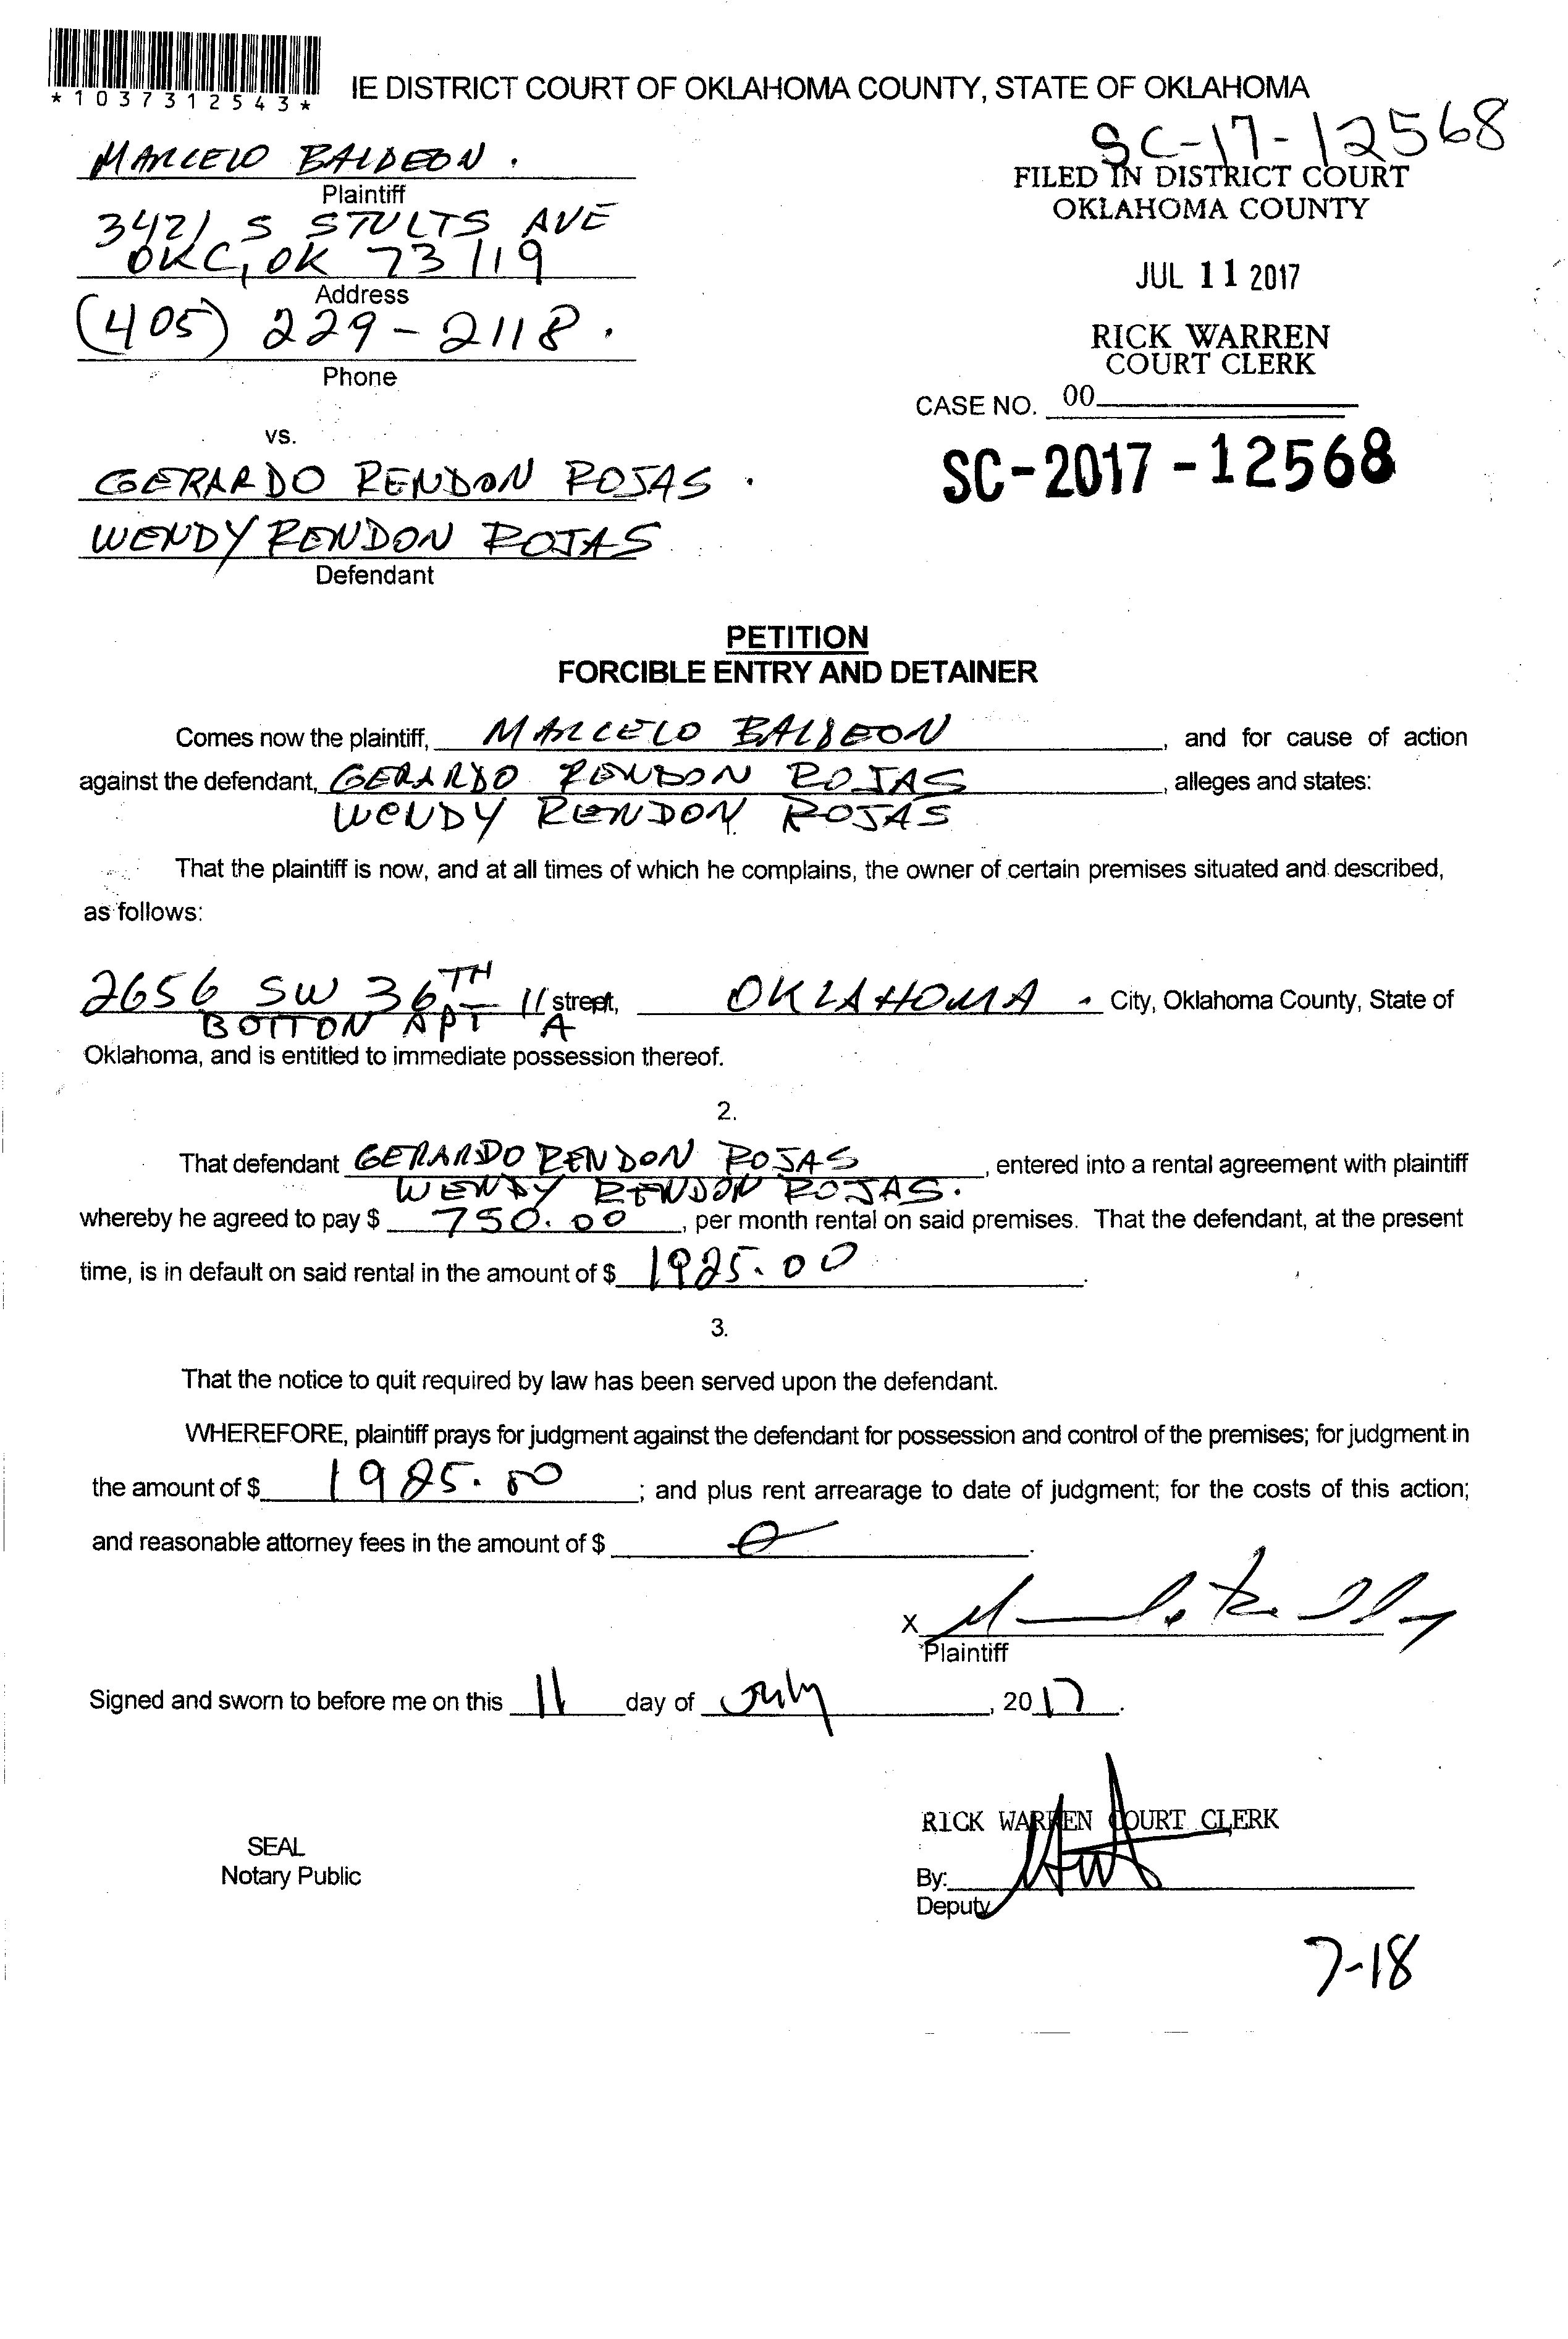 *1037312543*
IE DISTRICT COURT OF OKLAHOMA COUNTY, STATE OF OKLAHOMA
SC-17-12568
MARCELO BALDEON.
Plaintiff
3421 S STULTS AVE
OKC, OK 73119
Address
(405) 229-2118.
Phone
FILED IN DISTRICT COURT
OKLAHOMA COUNTY
JUL 11 2017
RICK WARREN
COURT CLERK
CASE NO. 00
SC-2017-12568
vs.
GERARDO RENDON ROJAS.
WENDY RENDON ROJAS
Defendant
PETITION
FORCIBLE ENTRY AND DETAINER
Comes now the plaintiff, MARCELO BALDEON, and for cause of action
against the defendant, GERARDO RENDON ROJAS, alleges and states:
WENDY RENDON ROJAS
That the plaintiff is now, and at all times of which he complains, the owner of certain premises situated and described,
as follows:
2656 SW 36TH street, OKLAHOMA. City, Oklahoma County, State of
BOTTON APT "A
Oklahoma, and is entitled to immediate possession thereof.
2.
That defendant GERARDO RENDON ROJAS, entered into a rental agreement with plaintiff
WENDY RENDON ROJAS.
whereby he agreed to pay $ 750.00, per month rental on said premises. That the defendant, at the present
time, is in default on said rental in the amount of $ 1925.00.
3.
That the notice to quit required by law has been served upon the defendant.
WHEREFORE, plaintiff prays for judgment against the defendant for possession and control of the premises; for judgment in
the amount of $ 1925.00; and plus rent arrearage to date of judgment; for the costs of this action;
and reasonable attorney fees in the amount of $ .
X
Plaintiff
Signed and sworn to before me on this 11 day of July, 2017.
SEAL
Notary Public
RICK WARREN COURT CLERK
By:
Deputy
7-18